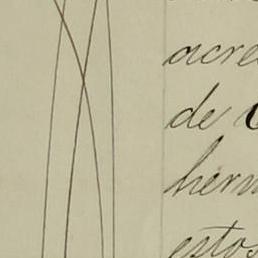 acre
de
herm
estos